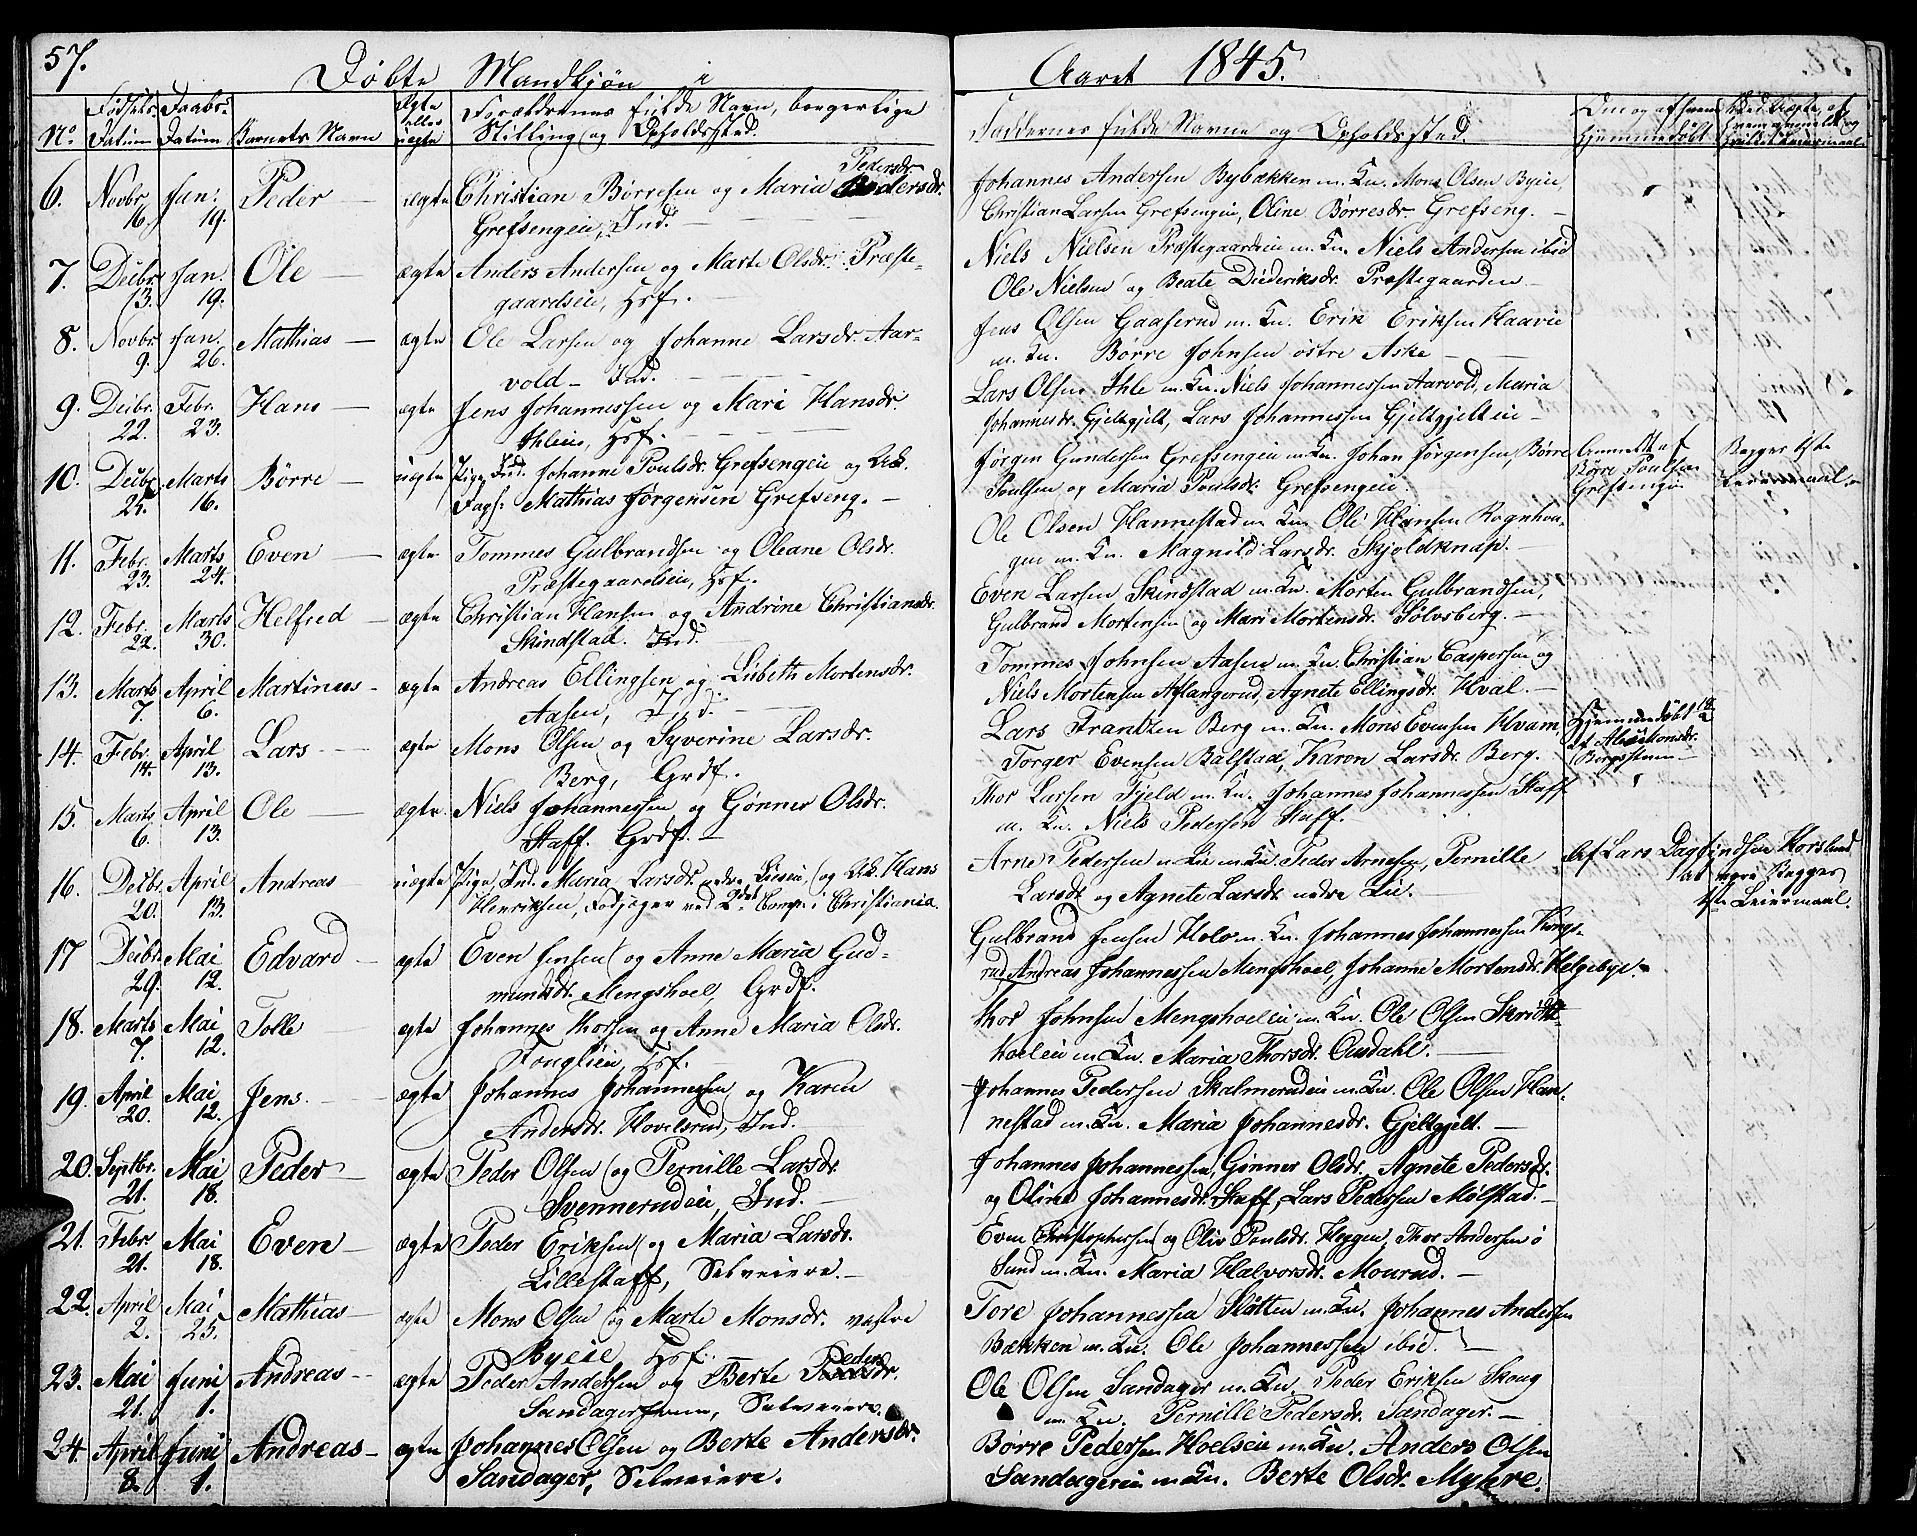 57.
Døbte Mandkjøn i
Aaret 1845.
No Fødsels Datum Daabs Datum Barnets Navn Ægte eller uægte Forældrenes fulde Navn, borgerlige Stilling og Opholdssted.
Faddernes fulde Navne og Opholdssted.
6. Novbr. 16. Jan: 19. Peder ægte Christian Børresen og Maria Pedersdr.
Grefsengeie, Ind.
Johannes Andersen Bybækken m. Kn. Mons Olsen Byeie,
Christian Larsen Grefsengeie, Oline Børresdr. Grefseng.
7. Decbr. 13. Jan. 19. Ole ægte Anders Andersen og Marte Olsdr. Præste-
gaardseie, Hsf.
Niels Nielsen Præstegaardseie m. Kn. Niels Andersen ibid
Ole Nielsen og Beate Dideriksdr. Præstegaarden
8. Novbr. 9. Jan. 26. Mathias ægte Ole Larsen og Johanne Larsdr. Aar-
vold Ind.
Jens Olsen Gaaserud m. Kn. Erik Eriksen Haavie
m. Kn. Børre Johnsen østre Aske
9. Decbr. 22. Febr. 23. Hans ægte Jens Johannessen og Mari Hansdr.
Ihleeie, Hsf.
Lars Olsen Ihle m. Kn. Niels Johannessen Aarvold, Maria
Johannesdr. Gjeltgjelt, Lars Johannessen Gjeltgjelteie
10. Decbr. 24. Marts 16. Børre uægte Pige Ind. Johanne Poulsdr. Grefsengeie og Uk.
Dags: Mathias Jørgensen Grefseng.
Jørgen Gundersen Grefsengeie m. Kn. Johan Jørgensen, Børre
Poulsen og Maria Poulsdr. Grefsengeie
Anmeldt af
Børre Poulsen
Grefsengeie
Begges 1ste
Leiermaal.
11. Febr. 23. Marts 24. Even ægte Tommes Gulbrandsen og Oleane Olsdr.
Præstegaardseie, Hsf.
Ole Olsen Hannestad m. Kn. Ole Hansen Rognhou-
gen m. Kn. Magnild Larsdr. Skjoldknap.
12. Febr. 22. Marts 30. Helfred ægte Christian Hansen og Andrine Christiansdr.
Skindstad. Ind.
Even Larsen Skindstad m. Kn. Morten Gulbrandsen,
Gulbrand Mortensen og Mari Mortensdr. Sølvsberg.
13. Marts 7. April 6. Martinus ægte Andreas Ellingsen og Lisbeth Mortensdr.
Aasen, Ind.
Tommes Johnsen Aasen m. Kn. Christian Caspersen og
Niels Mortensen Aslangerud, Agnete Ellingsdr. Hval.
14. Febr. 14. April 13. Lars ægte Mons Olsen og Syverine Larsdr.
Berg, Grdf.
Lars Frantzen Berg m. Kn. Mons Evensen Hvam,
Torger Evensen Balstad, Karen Larsdr. Berg.
Hjemmedøbt
af Monsdr.
15. Marts 6. April 13. Ole ægte Niels Johannessen og Gønner Olsdr.
Staff. Grdf.
Thor Larsen Fjeld m. Kn. Johannes Johannessen Staff
m. Kn. Niels Pedersen Staff.
16. Decbr. 20. April 13. Andreas uægte Pige, Ind. Maria Larsdr. nedre Lieeie, og Uk. Hans
Henriksen, Fodjæger ved 2det Comp. i Christiania.
Arne Pedersen n. Lie m. Kn. Peder Arnesen, Pernille
Larsdr. og Agnete Larsdr. nedre Lie.
Af Lars Dagfindsen Horslund
at være Begges
1ste Leiermaal.
17 Decbr. 29. Mai 12. Edvard ægte Even Jensen og Anne Maria Gud-
mundsdr. Mengshoel, Grdf.
Gulbrand Jensen Holo m. Kn. Johannes Johannessen Kongs-
rud, Andreas Johannessen Mengshoel, Johanne Mortensdr. Helgebye.
18. Marts 7. Mai 12. Tolle egte Johannes Thorsen og Anne Maria Olsdr.
Fouglieie, Hsf.
Thor Johnsen Mengshoeleie m. Kn. Ole Olsen Skridts-
hoeleie m. Kn. Maria Thorsdr. Ousdahl.
19. April 20. Mai 12. Jens. ægte Johannes Johannesen og Karen
Andersdr. Hovelsrud, Ind.
Johannes Pedersen Skalmerudeie m. Kn. Ole Olsen Han-
nestad m. Kn. Maria Johannesdr. Gjeltgjelt.
20. Septbr. 21. Mai 18. Peder ægte Peder Olsen og Pernille Larsdr.
Svennerudeie, Ind.
Johannes Johannessen, Gønner Olsdr. Agnete Pedersdr.
og Oline Johannesdr. Staff, Lars Pedersen Mølstad.
21. Febr. 21. Mai 18. Even ægte Peder Eriksen og Maria Larsdr.
Lillestaff, Selveiere.
Even Christophersen og Oliv Poulsdr. Heggen, Thor Andersen ø
Sund m. Kn. Maria Halvorsdr. Mourud.
22. April 2. Mai 25. Mathias ægte Mons Olsen og Marte Monsdr. vestre
Byeie Hsf.
Tore Johannessen Slåtten m. Kn. Johannes Andersen
Bækken m. Kn. Ole Johannessen ibid.
23. Mai 21. Juni 1. Andreas ægte Peder Andersen og Berte Pedersdr.
Selveiere.
Ole Olsen Sandager m. Kn. Peder Eriksen Skoug
m. Kn. Pernille Pedersdr. Sandager.
24. April 8. Juni 1. Andreas ægte Johannes Olsen og Berte Andersdr.
Sandager, Selveiere.
Børre Pedersen Hoelseie m. Kn. Anders Olsen
Sandagereie m. Kn. Berte Olsdr. Myhre.